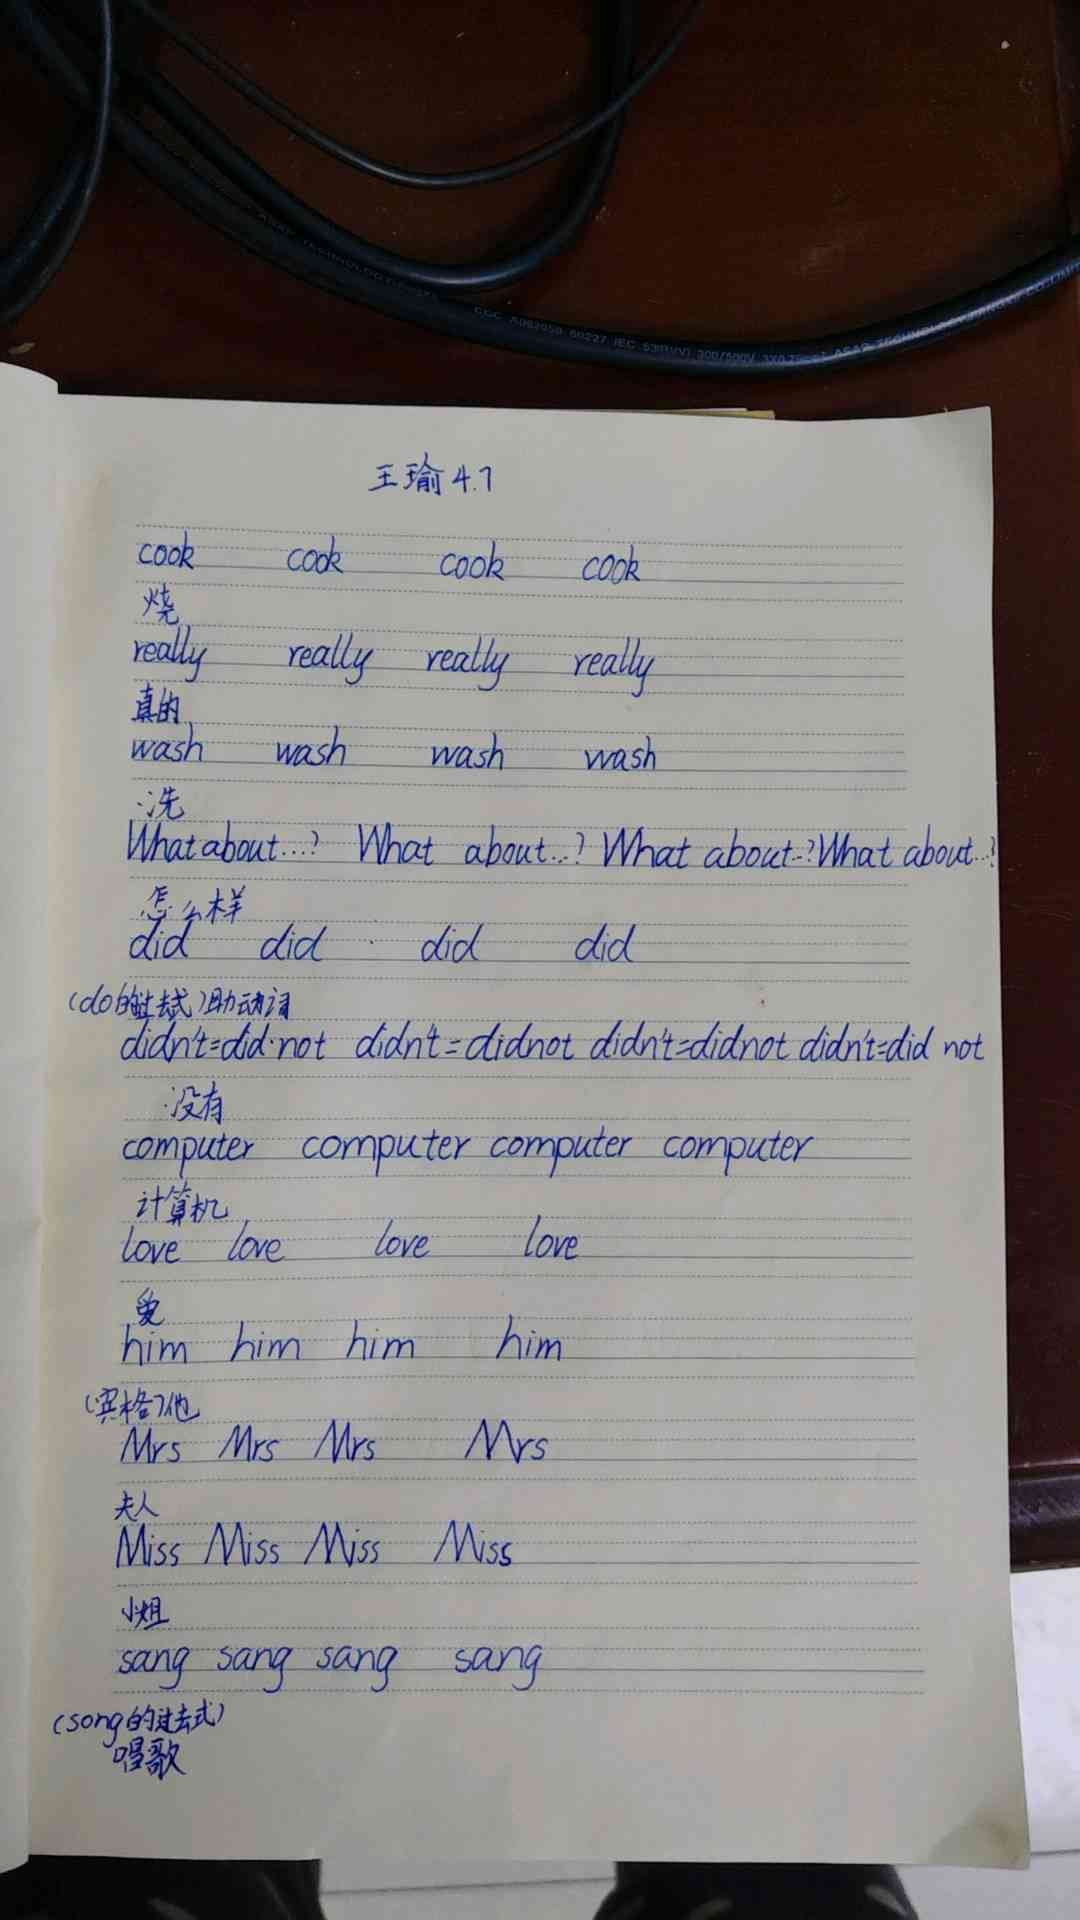 CCC A082050 60227 IEC 53(RVV) 300/500V
王瑜 4.7
cook cook cook cook
烧
really really really really
真的
wash wash wash wash
洗
What about...? What about...? What about..? What about...?
怎么样
did did did did
(do的过去式)助动词
didn't=did not didn't=didnot didn't=didnot didn't=did not
没有
computer computer computer computer
计算机
love love love love
爱
him him him him
(宾格)他
Mrs Mrs Mrs Mrs
夫人
Miss Miss Miss Miss
小姐
sang sang sang sang
(song的过去式)
唱歌